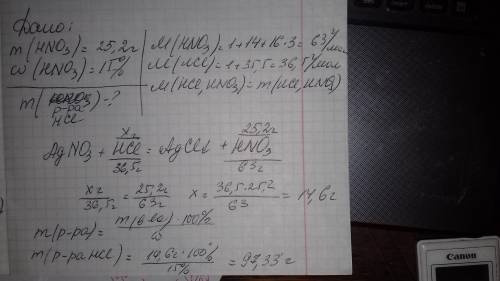 Дано:
m(HNO3) = 25,2г
ω(HNO3) = 15%
m( р-ра HCl ) - ?
M(HNO3) = 1+14+16·3 = 63 г/моль
M(HCl) = 1+35,5 = 36,5 г/моль
M(HCl, HNO3) = m(HCl, HNO3)
xг 25,2г
AgNO3 + HCl = AgCl↓ + HNO3
36,5г 63г
xг/36,5г = 25,2г/63г x = 36,5·25,2/63 = 14,6г
m(р-ра) = m(в-ва)·100%/ω
m(р-ра HCl) = 14,6г·100%/15% = 97,33г
Canon